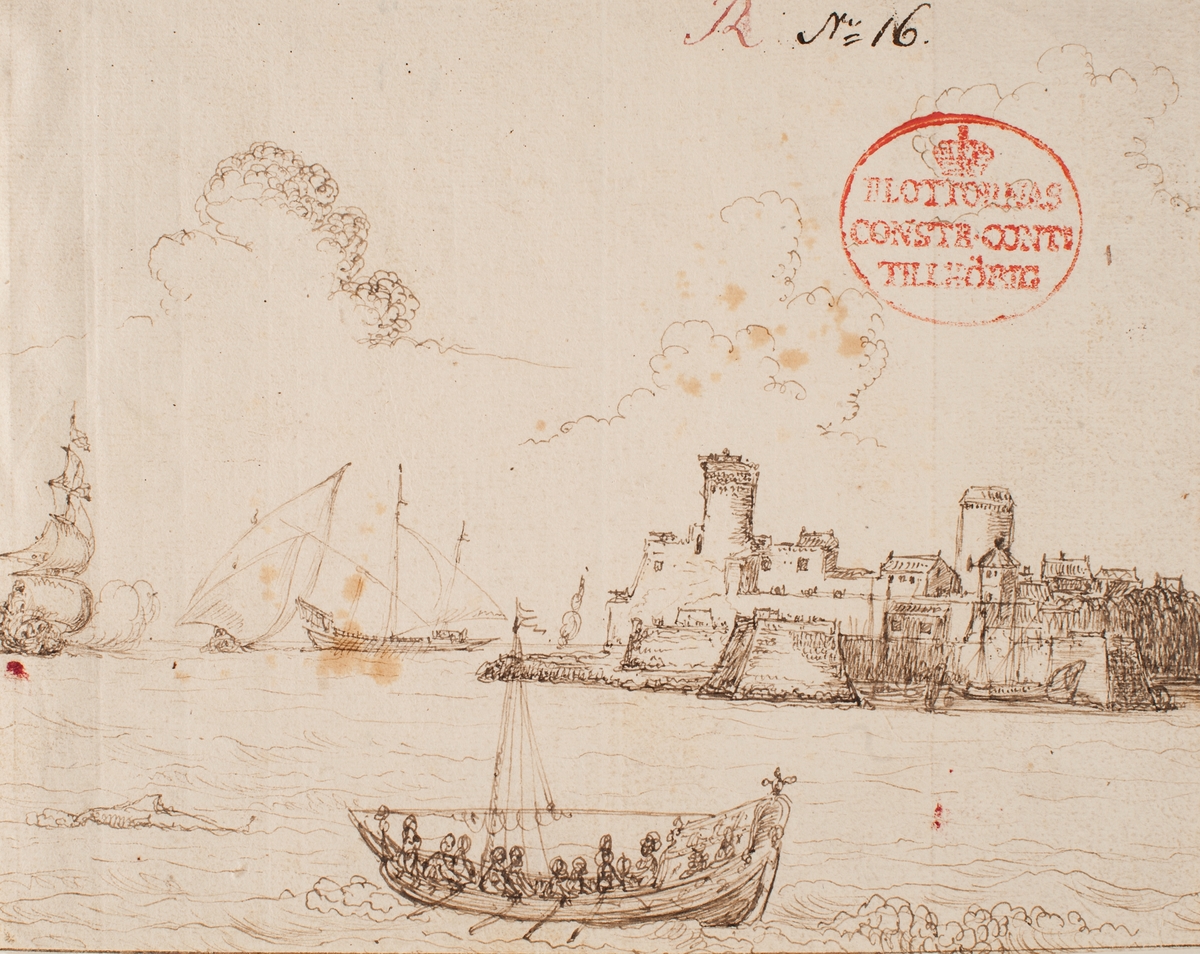 R Nr= 16.
FLOTTORNAS
CONSTR·CONT:
TILLHÖRIG